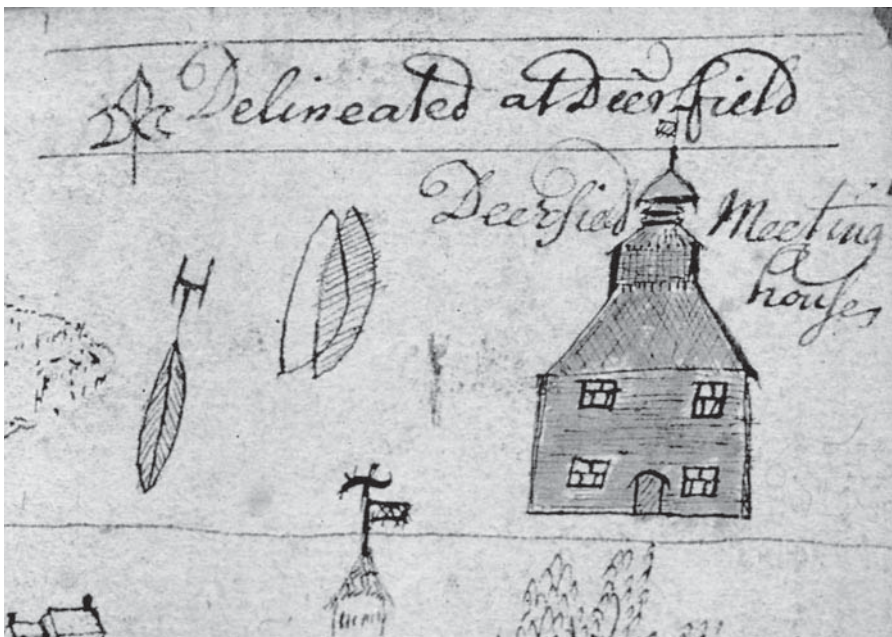 Delineated at Deerfield
Deerfield Meeting
house